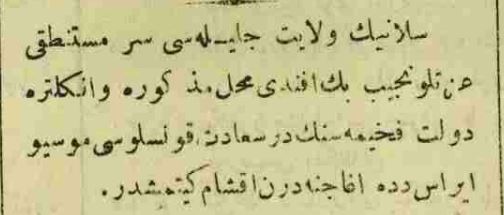 سلانیك ولایت جلیله‌سی سر مستنطقی
عزتلو نجیب بك افندی محل مذكوره وانكلتره
دولت فخیمه سنك درسعادت قونسلوسی موسیو
دن اقشام كیتمشدر.